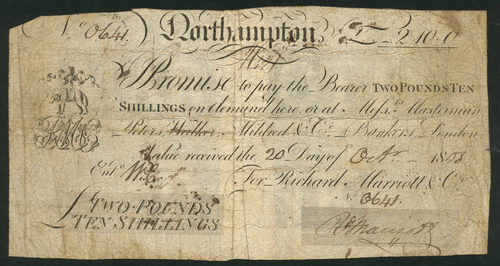 No. 0641. Northampton, £ 2.10.0
I Promise to pay the Bearer TWO POUNDS TEN
SHILLINGS on demand here, or at Messrs. Masterman
Peters, Walker, Mildred & Co. Bankers London
Value received the 20 Day of Oct. 180
Entd.
For Richard Marriott & Co.
No. 0641.
£ TWO-POUNDS
TEN SHILLINGS
Rd. Marriott